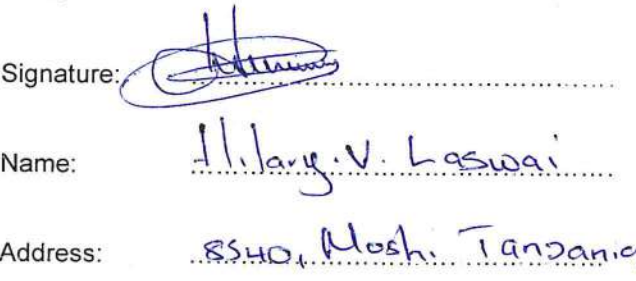 Signature:
Name: Hilary. V. Laswai
Address: 8540, Moshi Tanzania